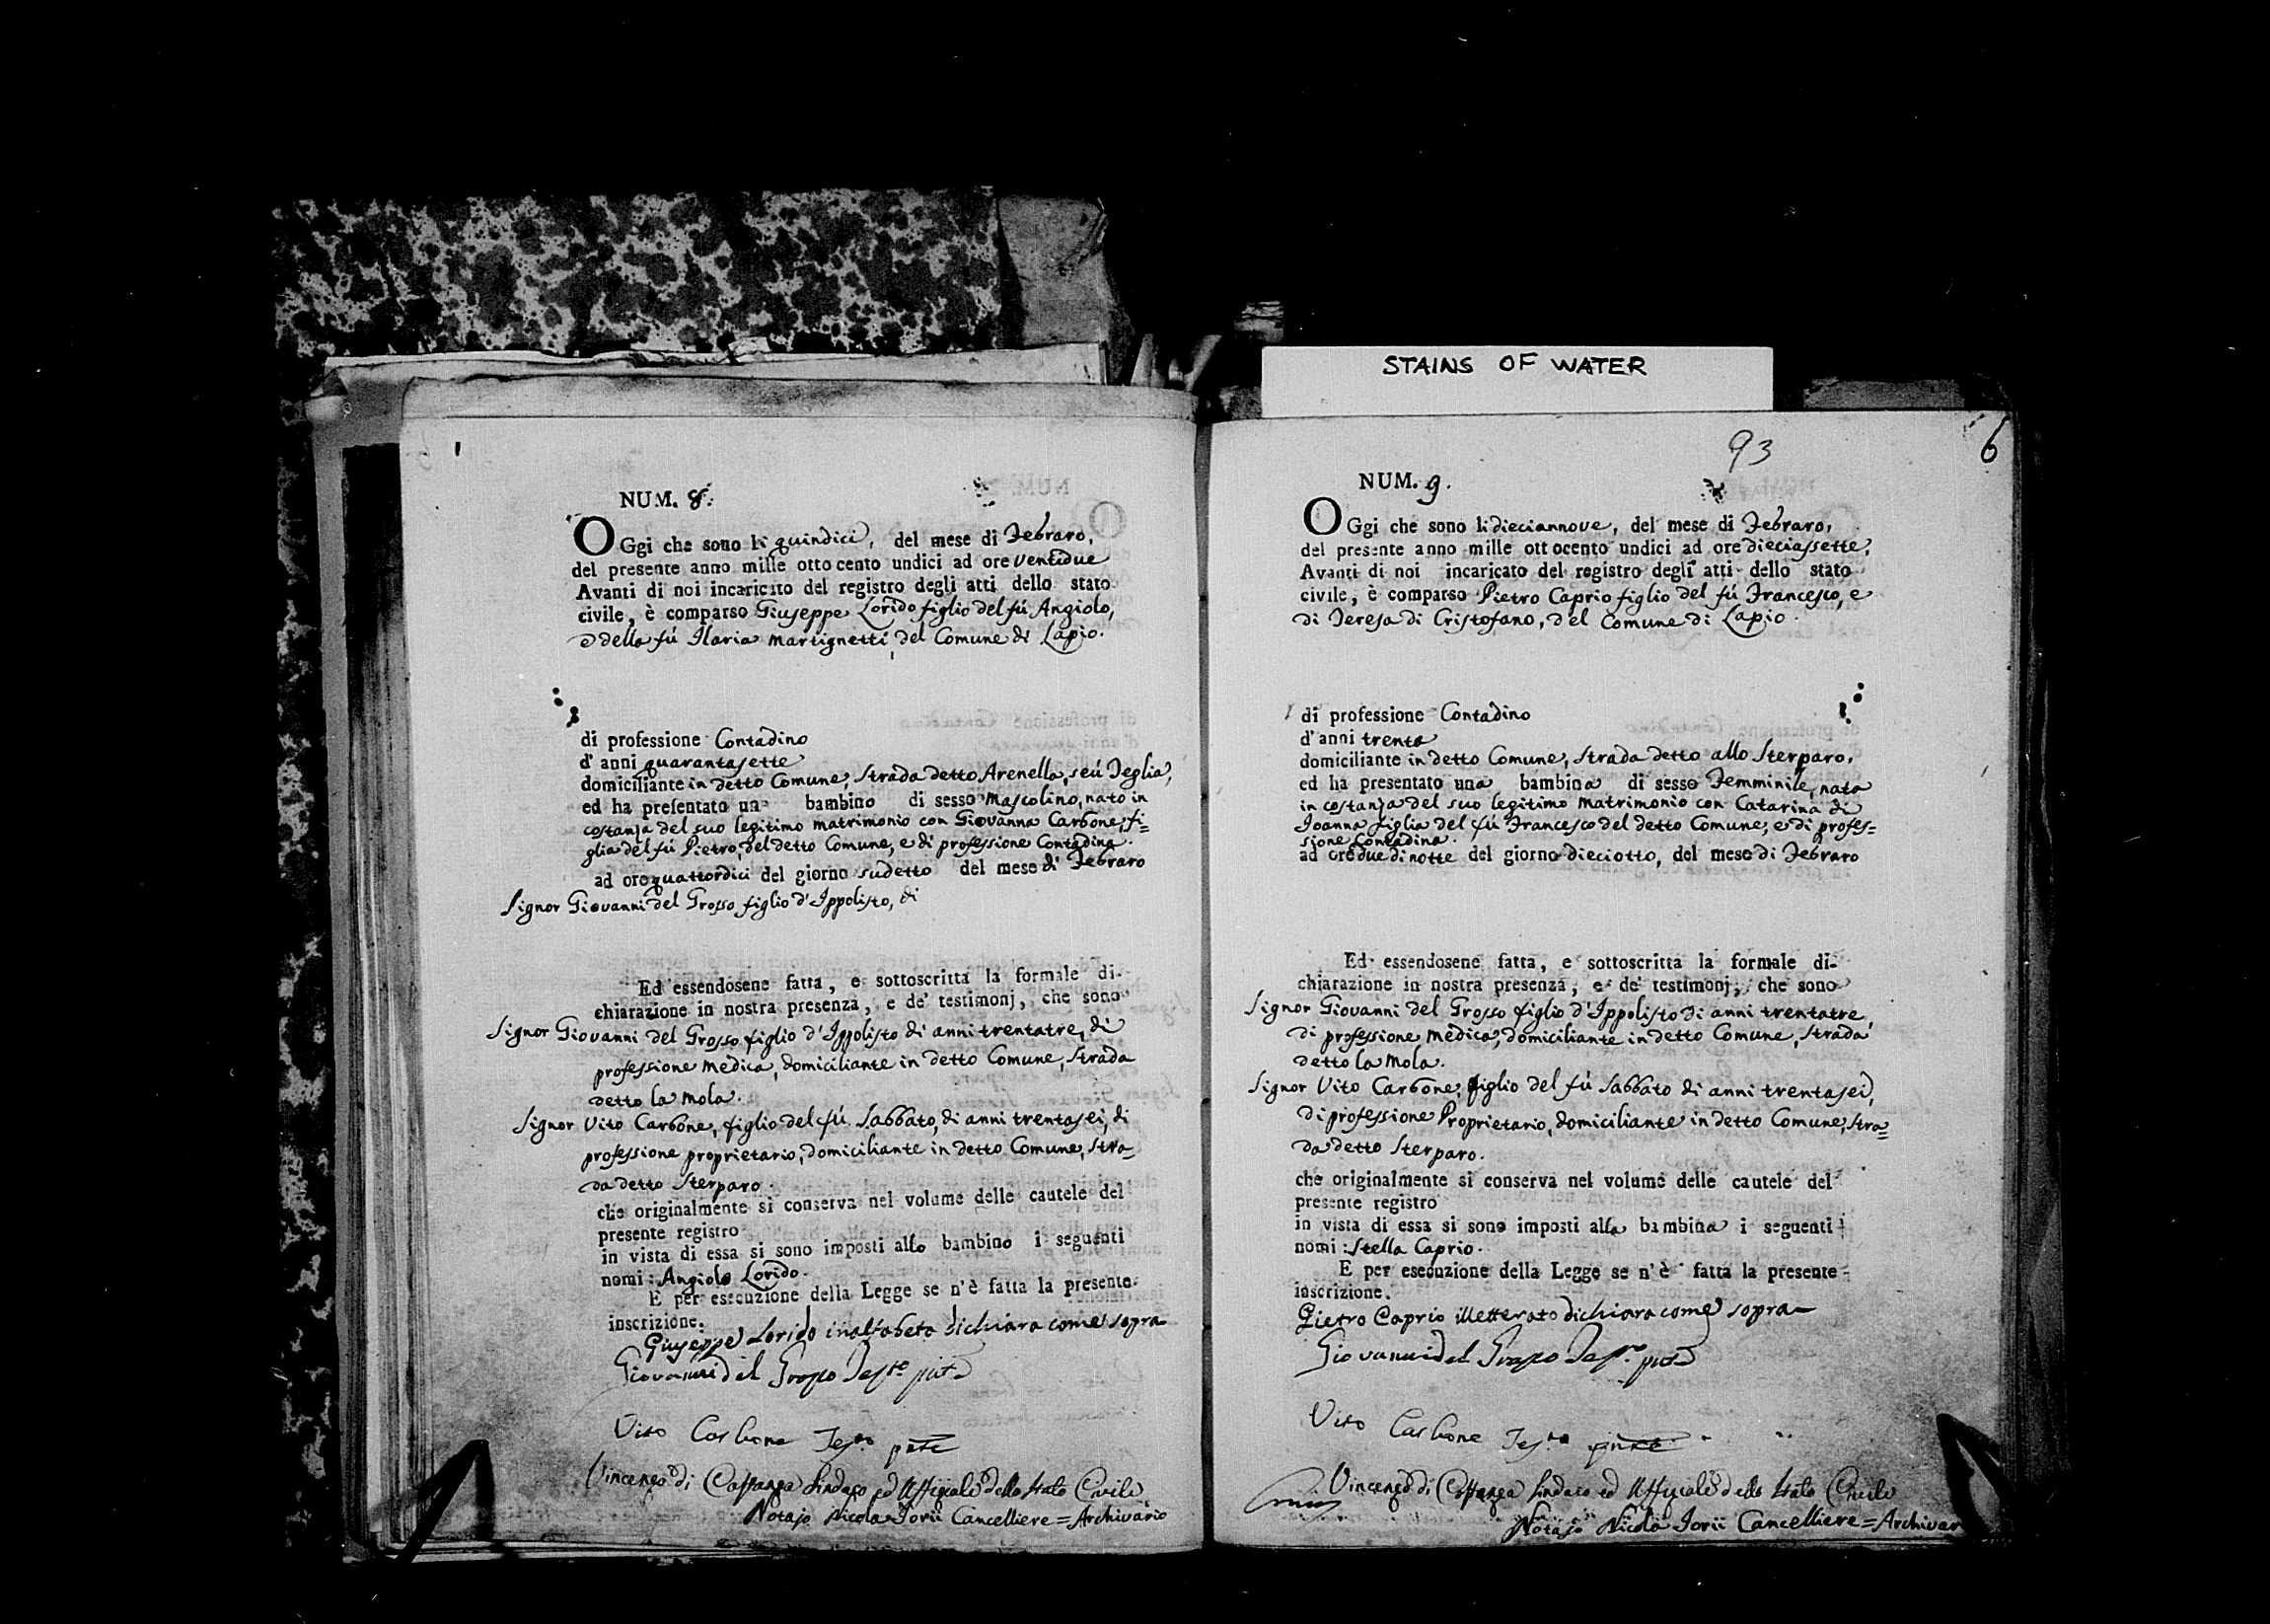 STAINS OF WATER
NUM. 8.
OGgi che sono li quindici, del mese di Febraro,
del presente anno mille ottocento undici ad ore ventidue
Avanti di noi incaricato del registro degli atti dello stato
civile, è comparso Giuseppe Lorido figlio del fú Angiolo,
e della fú Ilaria Martignetti, del Comune di Lapio.
di professione Contadino
d' anni quarantasette
domiciliante in detto Comune, Strada detto Arenella, seú Teglia,
ed ha presentato un bambino di sesso Mascolino, nato in
costanza del suo legitimo matrimonio con Giovanna Carbone, fi=
glia del fú Pietro, del detto Comune, e di professione Contadina.
ad ore quattordici del giorno sudetto del mese di Febraro
Signor Giovanni del Grosso figlio d'Ippolisto, di
Ed essendosene fatta, e sottoscritta la formale di-
chiarazione in nostra presenza, e de' testimonj, che sono
Signor Giovanni del Grosso figlio d'Ippolisto di anni trentatre, di
professione Medica, domiciliante in detto Comune, Strada
detto la Mola.
Signor Vito Carbone, figlio del fú Sabbato, di anni trentasei, di
professione proprietario, domiciliante in detto Comune, Stra=
da detto Sterparo.
che originalmente si conserva nel volume delle cautele del
presente registro
in vista di essa si sono imposti allo bambino i seguenti
nomi: Angiolo Lorido.
E per esecuzione della Legge se n'è fatta la presente
inscrizione.
Giuseppe Lorido inalfabeto dichiara come sopra
Giovanni del Grosso Testo. pnte
Vito Carbone Testo pnte
Vincenzo di Costanza Sindaco ed Uffiziale dello Stato Civile
Notajo Nicola Iorii Cancelliere = Archivario
93
6
NUM. 9.
OGgi che sono li dieciannove, del mese di Febraro,
del presente anno mille ottocento undici ad ore dieciassette,
Avanti di noi incaricato del registro degli atti dello stato
civile, è comparso Pietro Caprio figlio del fú Francesco, e
di Teresa di Cristofano, del Comune di Lapio.
di professione Contadino
d' anni trenta
domiciliante in detto Comune, Strada detto allo Sterparo,
ed ha presentato una bambina di sesso Femminile, nata
in costanza del suo legitimo Matrimonio con Catarina di
Ioanna figlia del fú Francesco del detto Comune, e di profes=
sione Contadina.
ad ore due di notte del giorno dieciotto, del mese di Febraro
Ed essendosene fatta, e sottoscritta la formale di-
chiarazione in nostra presenza, e de' testimonj, che sono
Signor Giovanni del Grosso figlio d'Ippolisto di anni trentatre,
di professione Medica, domiciliante in detto Comune, Strada
detto la Mola.
Signor Vito Carbone, figlio del fú Sabbato di anni trentasei,
di professione Proprietario, domiciliante in detto Comune, Stra=
da detto Sterparo.
che originalmente si conserva nel volume delle cautele del
presente registro
in vista di essa si sono imposti alla bambina i seguenti
nomi: Stella Caprio.
E per esecuzione della Legge se n'è fatta la presente
inscrizione.
Pietro Caprio illetterato dichiara come sopra
Giovanni del Grosso Testo. pnte
Vito Carbone Testo pnte
Vincenzo di Costanza Sindaco ed Uffiziale dello Stato Civile
Notajo Nicola Iorii Cancelliere = Archivar